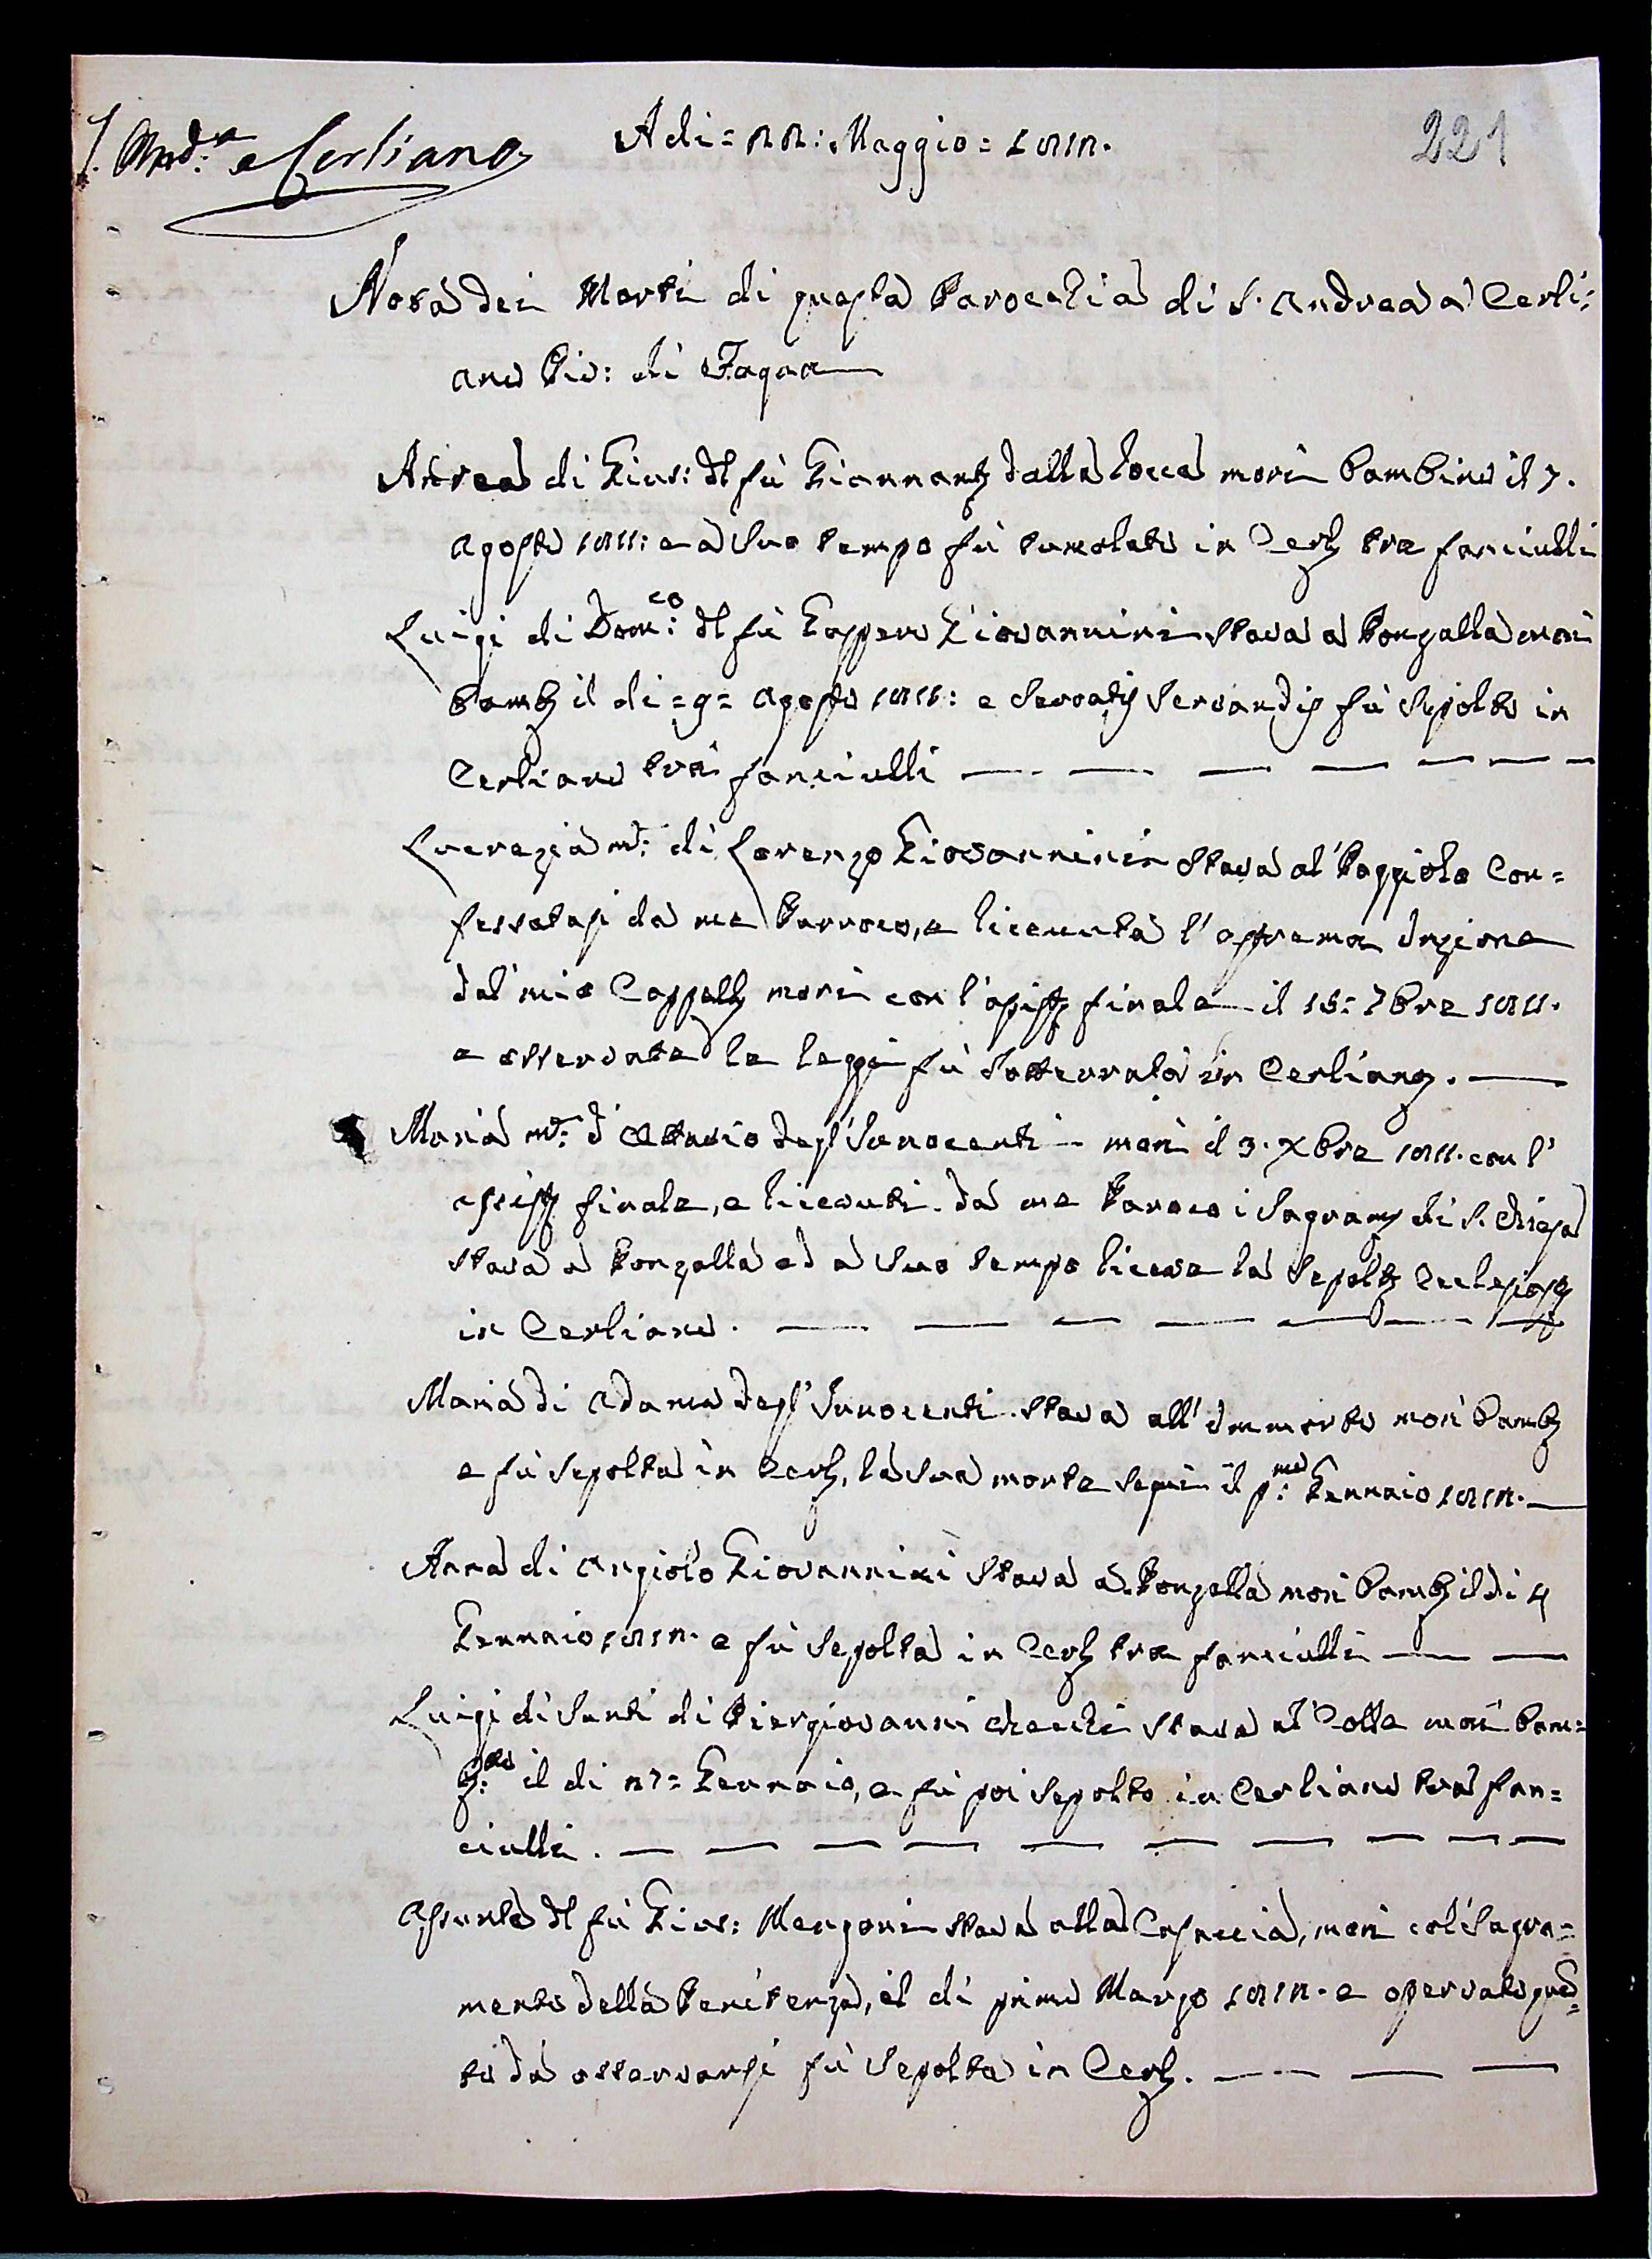 S. And:a a Cerliano
Adi = 22: Maggio = 1812.
221
Nota dei Morti di questa Parocchia di S. Andrea a Cerli=
ano Piv: di Fagna
Andrea di Gius: del fù Giannant dalla Rocca morì bambino il 7.
Agosto 1811: e a suo tempo fù tumolato in Cerl tra fanciulli
Luigi di Dom:co del fù Gaspero Giovannini stava a Ponzalla morì
bamb il di = 9 = Agosto 1811: e servatis servandis fù sepolto in
Cerliano trà fanciulli
Lucrezia m: di Lorenzo Giovannini stava al Poggiolo Con=
fessatasi da me Parroco, e ricevuta l'estrema Unzione
dal mio Cappell morì con l'assist finale il 16: 7bre 1811.
e osservate le leggi fù sotterrata in Cerliano.
Maria m: d'Ottavio degl'Innocenti morì il 3. Xbre 1811. con l'
assist finale, e ricevuti da me Paroco i Sagram di S. Chiesa
stava a Ponzalla ed a suo tempo riceve la sepolt Ecclesiast
in Cerliano.
Maria di Adamo degl'Innocenti stava all' morì bamb
e fù sepolta in Cerl, la sua morte seguì il p:mo Gennaio 1812.
Anna di Angiolo Giovannini stava a Ponzalla morì bamb il di 4
Gennaio 1812. e fù sepolta in Cerl tra fanciulli
Luigi di Santi di Piergiovanni Checchi stava al Colle morì bam=
b:no il di 27 = Gennaio, e fù poi sepolto in Cerliano tra fan=
ciulli.
Assunta del fù Gius: Mengoni stava alla Casaccia, morì col Sagra=
mento della Penitenza, il di primo Marzo 1812. e osservato quan=
to da osservarsi fù sepolta in Cerl.